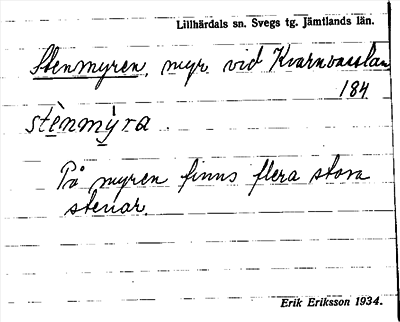 Lillhärdals sn. Svegs tg. Jämtlands län.
Stenmyren, myr vid Kvarnvasslan
184
stènmýra.
På myren finns flera stora
stenar.
Erik Eriksson 1934.